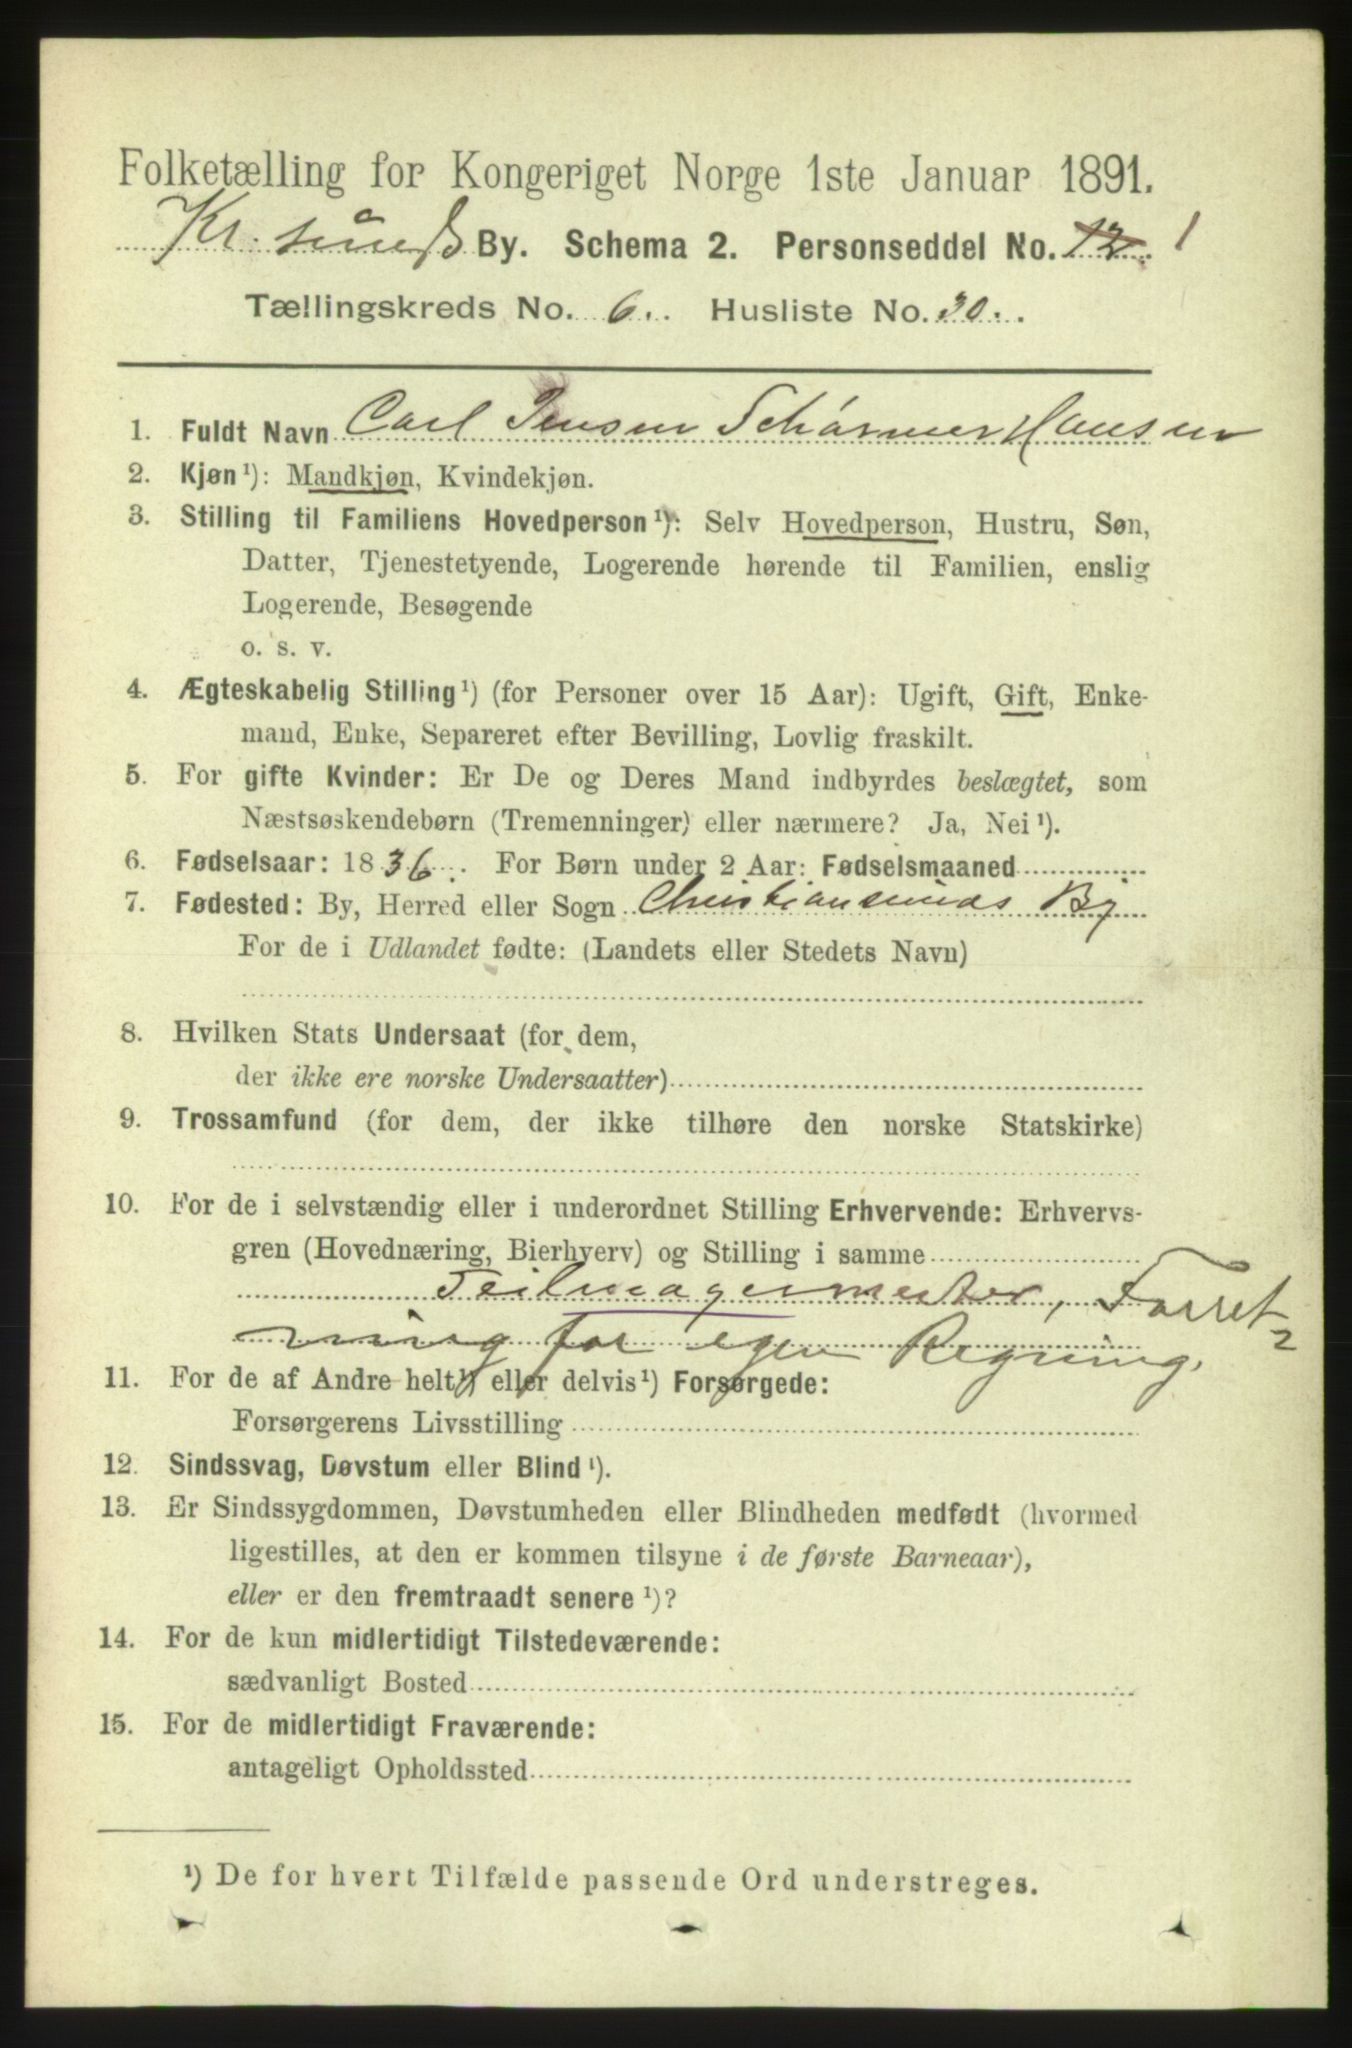 Folketælling for Kongeriget Norge 1ste Januar 1891.
Kr. sunds By. Schema 2. Personseddel No. 12. 1
Tællingskreds No. 6. Husliste No. 30.
1. Fuldt Navn Carl Jensen Schärmer Hansen
2. Kjøn¹): Mandkjøn, Kvindekjøn.
3. Stilling til Familiens Hovedperson¹): Selv Hovedperson, Hustru, Søn,
Datter, Tjenestetyende, Logerende hørende til Familien, enslig
Logerende, Besøgende
o. s. v.
4. Ægteskabelig Stilling¹) (for Personer over 15 Aar): Ugift, Gift, Enke-
mand, Enke, Separeret efter Bevilling, Lovlig fraskilt.
5. For gifte Kvinder: Er De og Deres Mand indbyrdes beslægtet, som
Næstsøskendebørn (Tremenninger) eller nærmere? Ja, Nei¹).
6. Fødselsaar: 1836. For Børn under 2 Aar: Fødselsmaaned
7. Fødested: By, Herred eller Sogn Christiansunds By
For de i Udlandet fødte: (Landets eller Stedets Navn)
8. Hvilken Stats Undersaat (for dem,
der ikke ere norske Undersaatter)
9. Trossamfund (for dem, der ikke tilhøre den norske Statskirke)
10. For de i selvstændig eller i underordnet Stilling Erhvervende: Erhvervs-
gren (Hovednæring, Bierhverv) og Stilling i samme
Seilmagermester, Forret-
ning for egen Regning.
11. For de af Andre helt¹) eller delvis¹) Forsørgede:
Forsørgerens Livsstilling
12. Sindssvag, Døvstum eller Blind¹).
13. Er Sindssygdommen, Døvstumheden eller Blindheden medfødt (hvormed
ligestilles, at den er kommen tilsyne i de første Barneaar),
eller er den fremtraadt senere¹)?
14. For de kun midlertidigt Tilstedeværende:
sædvanligt Bosted
15. For de midlertidigt Fraværende:
antageligt Opholdssted
¹) De for hvert Tilfælde passende Ord understreges.